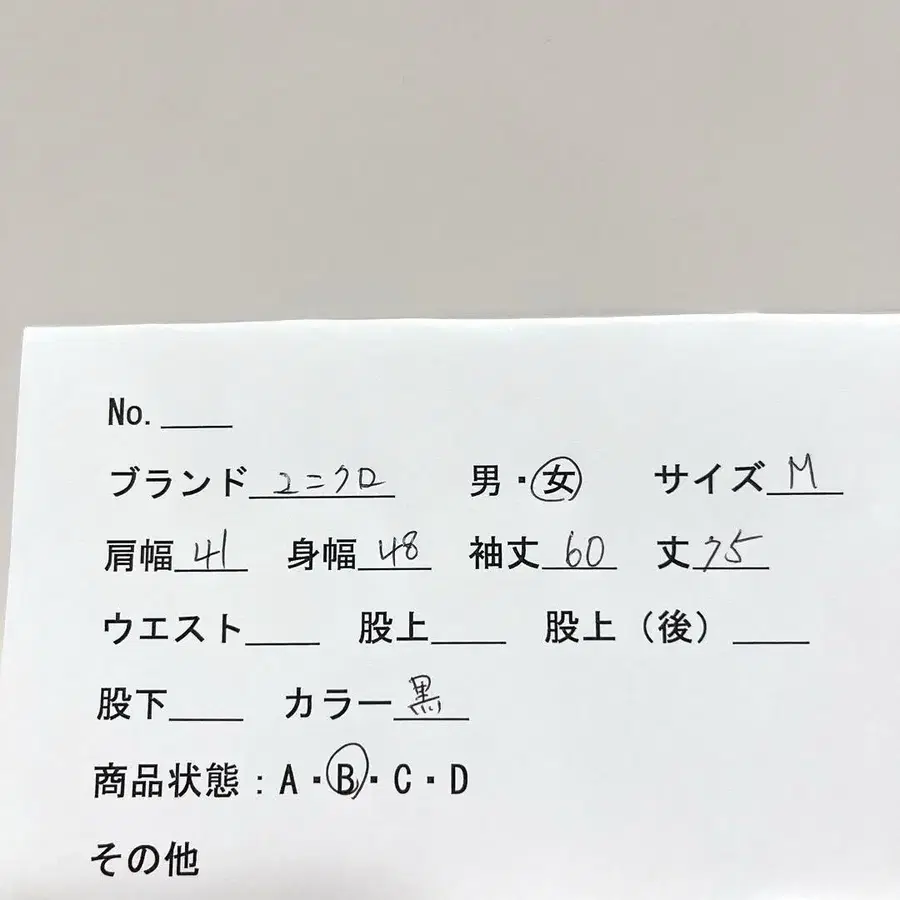 No.____
ブランド ユニクロ 男・女 サイズ M
肩幅 41 身幅 48 袖丈 60 丈 75
ウエスト____ 股上____ 股上（後）____
股下____ カラー 黒
商品状態：A・B・C・D
その他